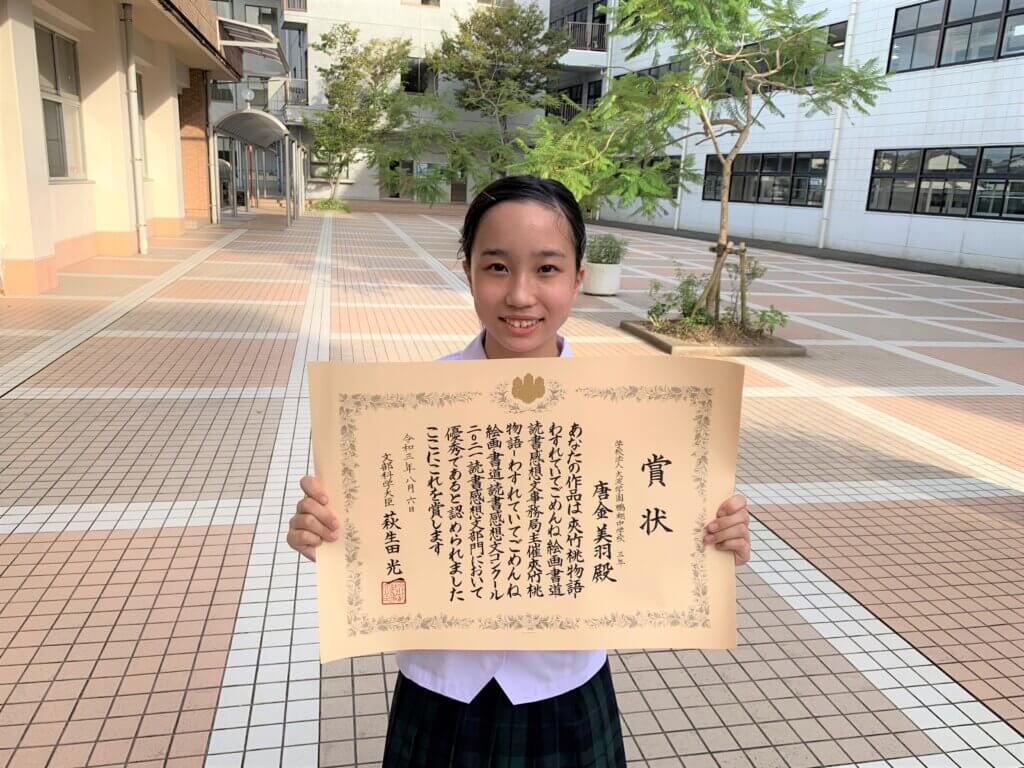 賞状
学校法人 大成学園鴨翔中学校 三年
唐金 美羽 殿
あなたの作品は 夾竹桃物語-
わすれていてごめんね 絵画書道
読書感想文事務局主催夾竹桃
物語-わすれていてごめんね
絵画書道読書感想文コンクール
二〇二一読書感想文部門において
優秀であると認められました
ここにこれを賞します
令和三年八月六日
文部科学大臣 萩生田光一